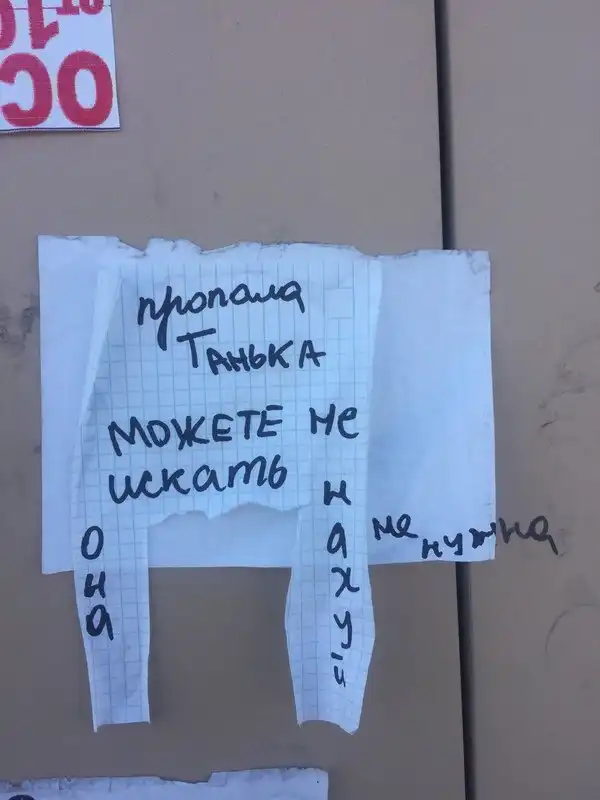 пропала
Танька
МОЖЕТЕ не
искать
она
нахуй
не нужна